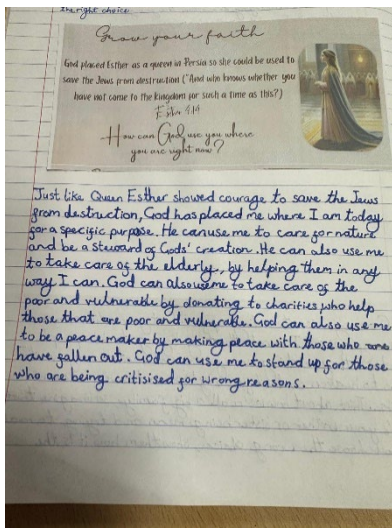 the right choice
Grow your faith
God placed Esther as a queen in Persia so she could be used to
save the Jews from destruction ("And who knows whether you
have not come to the kingdom for such a time as this?)
Esther 4:14
How can God use you where
you are right now?
Just like Queen Esther showed courage to save the Jews
from destruction, God has placed me where I am today
for a specific purpose. He can use me to care for nature
and be a steward of Gods' creation. He can also use me
to take care of the elderly, by helping them in any
way I can. God can also use me to take care of the
poor and vulnerable by donating to charities who help
those that are poor and vulnerable. God can also use me
to be a peace maker by making peace with those who
have fallen out. God can use me to stand up for those
who are being critisised for wrong reasons.